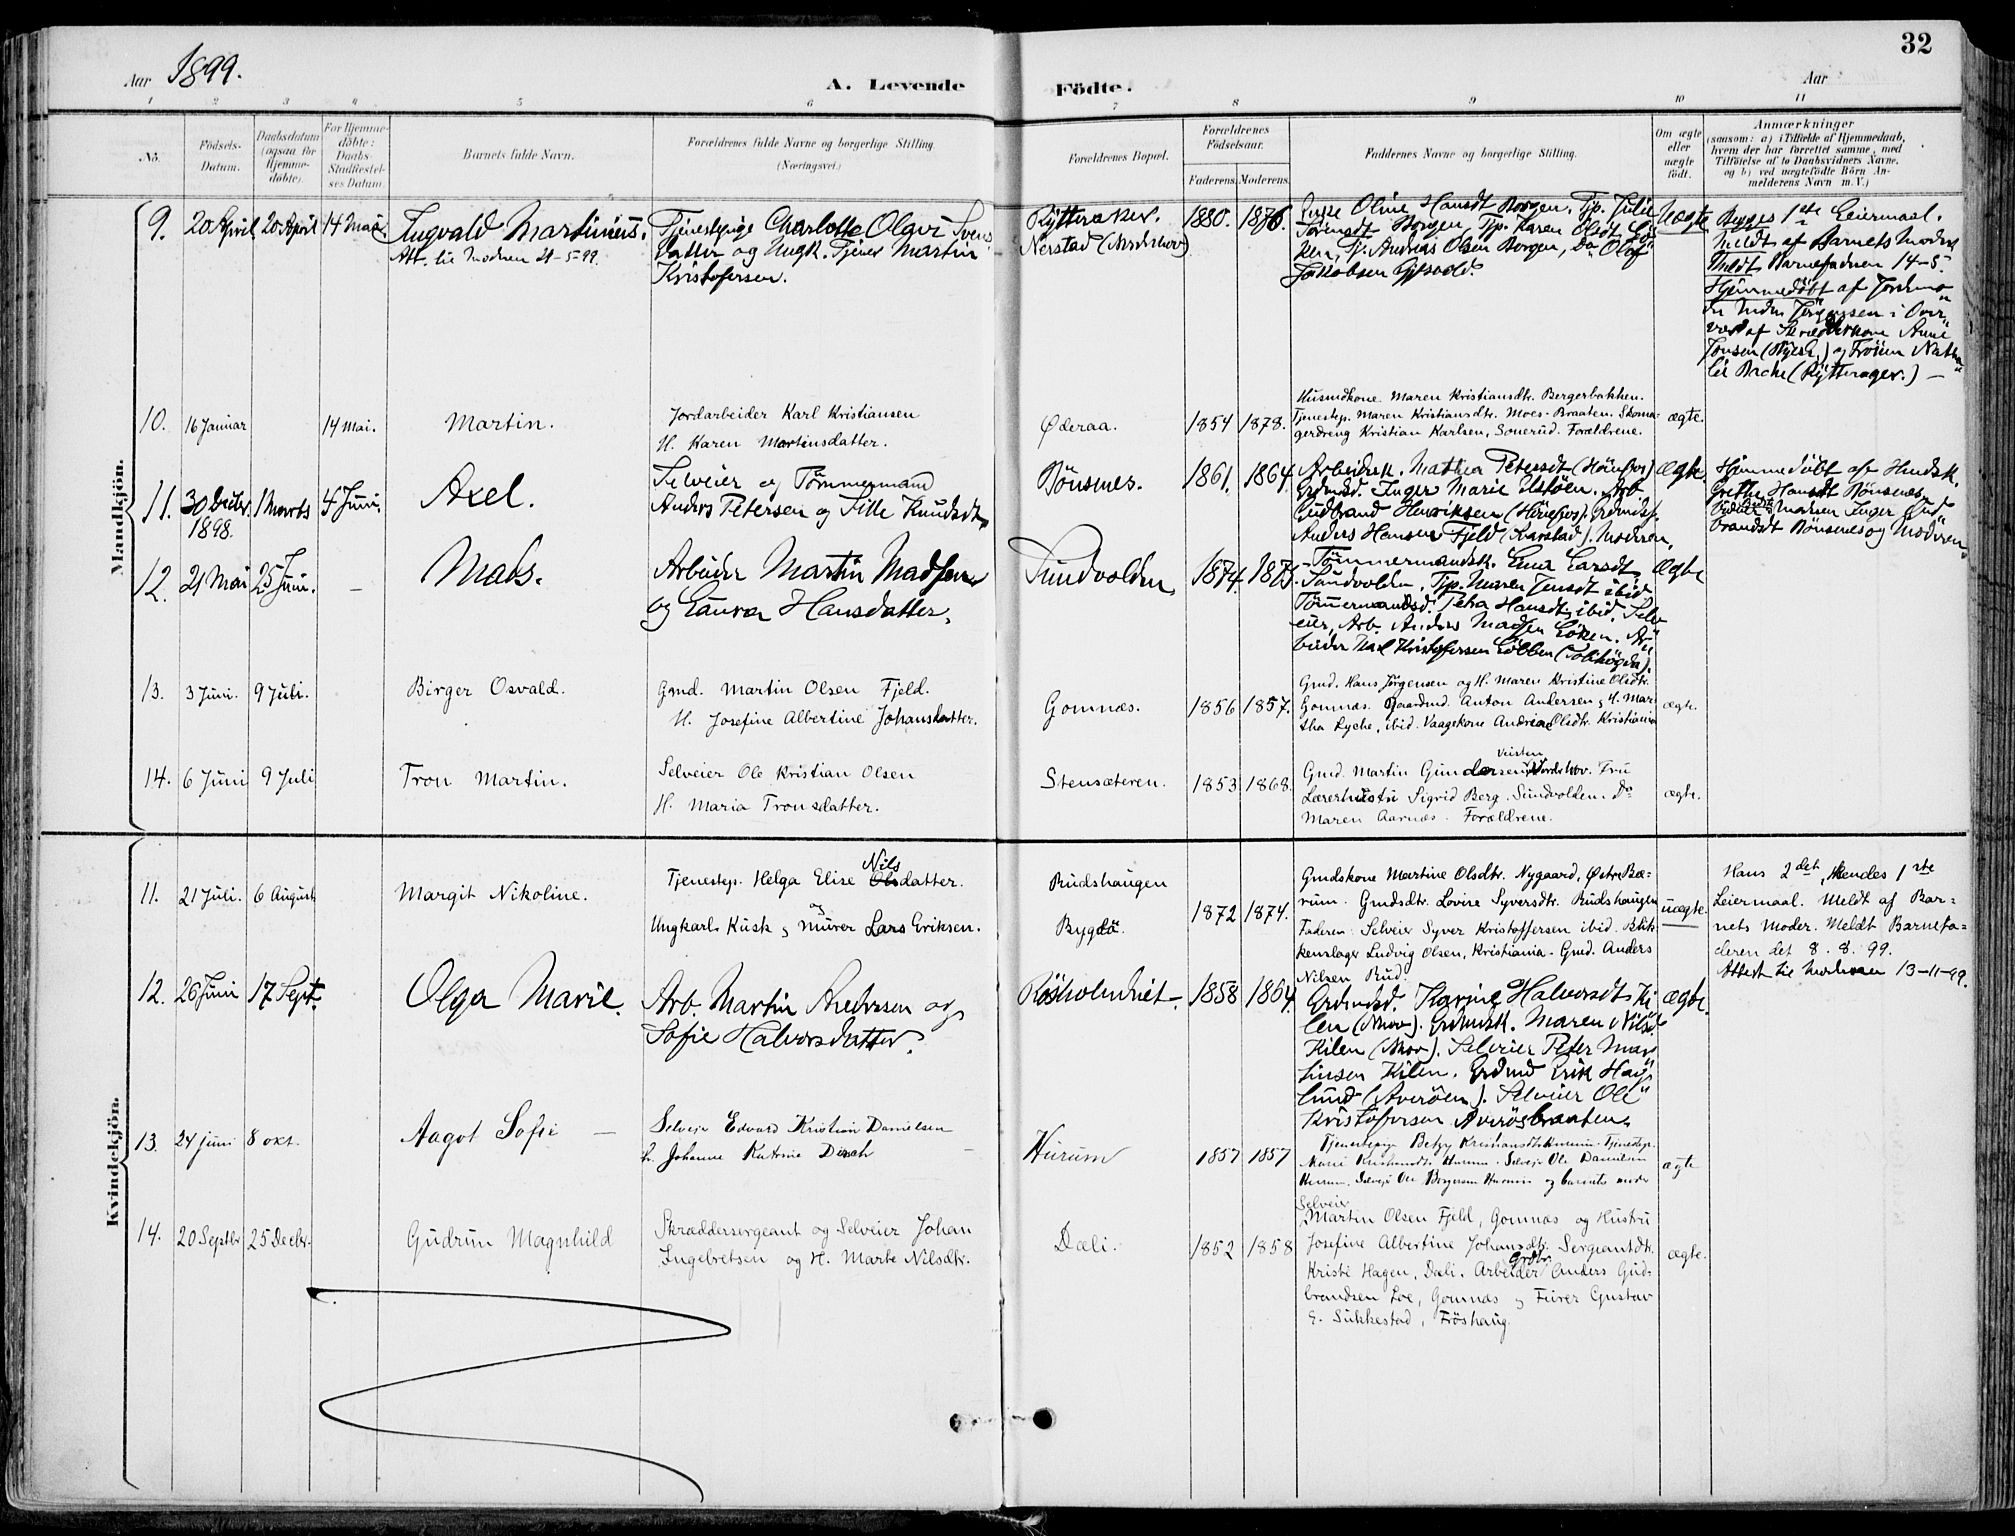 32
Aar 1899.
A. Levende Födte.
Aar
1 2 3 4 5 6 7 8 9 10 11
No.
Födsels-Datum.
Daabsdatum (ogsaa for Hjemmedöbte).
For Hjemmedöbte: Daabs-Stadfæstelses Datum.
Barnets fulde Navn.
Forældrenes fulde Navne og borgerlige Stilling (Næringsvei.)
Forældrenes Bopæl.
Forældrenes Födselsaar.
Faderens. Moderens.
Faddernes Navne og borgerlige Stilling.
Om ægte eller uægte födt.
Anmærkninger
(saasom: a) i Tilfælde af Hjemmedaab,
hvem der har forrettet samme, med
Tilföielse af to Daabsvidners Navne,
og b) ved uægtefödte Börn Anmelderens Navn m. V.)
Mandkjön.
9. 20 April 20 April 14 Mai. Ingvald Martinius.
Att. til Modren 21-5-99.
Tjenestepige Charlotte Olavi Svens
datter og Ungk. Tjener Martin
Kristofersen.
Rytteraker.
Nerstad (Nordrhov)
1880. 1876.
Oline Hansdt Borgen, Tjp. Julie
Borgen, Tjp. Karen Olsdt
Tj. Andreas Olsen Borgen, Do Olaf
Jakobsen Gjesvold.
Uægte
Begges 1ste Leiermaal.
Meldt af Barnets Moder
Meldt Barnefadren 14-5.
Hjemmedöbt af Jordmo
der i Over
vær af Anne
Jonsen og Fröken Natha
lie Bache (Rytterager.) —
10. 16 Januar 14 Mai. Martin.
Jordarbeider Karl Kristiansen
H. Karen Martinsdatter.
Øderaa. 1854 1878.
Husmdkone Maren Kristiansdtr. Bergerbakken.
Tjenestep. Maren Kristiansdtr. Moes-Braaten. Skoma-
gerdreng Kristian Karlsen, Sonerud. Forældrene.
ægte.
11. 30 Decbr. 1898. 1 Marts 4 Juni. Axel.
Selveier og Tömmermand
Anders Petersen og Sille Knudsdt.
Bönsnes. 1861. 1864.
Arbeidsk. Mathea Petersdt (Hönefos)
Grdmdsd. Inger Marie Ulstöen. Arb.
Gudbrand Henriksen (Hönefos). Grdmdsf.
Anders Hansen Fjeld (Karstad). Moderen.
ægte.
Hjemmedöbt af Husmdsk.
Grethe Hansdt Bönsnes.
Maren Inger Gud
brandsdt Bönsnes og Moderen.
12. 21 Mai 25 Juni. — Mads.
Arbeider Martin Madsen
og Laura Hansdatter.
Sundvolden. 1874. 1875.
Tömmermandsk. Emma Larsdt
Sundvolden, Tjp. Maren Jensdt ibid.
Tömmermandsd. Petra Hansdt, ibid. Selv
eier, Arb. Anders Madsen Löken. Ar
beider Karl Kristofersen Löbben
ægte
13. 3 Juni. 9 Juli. Birger Osvald.
Gmd. Martin Olsen Fjeld.
H. Josefine Albertine Johansdatter.
Gomnæs. 1856 1857.
Gmd. Hans Jörgensen og H. Maren Kristine Olsdtr.
Gomnæs. Gaardmd. Anton Andersen og H. Mar-
tha Lyche, ibid. Vaagekone Andrea Olsdtr. Kristiania
ægte.
14. 6 Juni 9 Juli Tron Martin.
Selveier Ole Kristian Olsen
H. Maria Tronsdatter.
Stensæteren. 1853 1868.
Veisten
Gmd. Martin Gundersen Nordrhov. Fru
Lærerhustru Sigrid Berg. Sundvolden. Do
Maren Aarnæs. Forældrene.
ægte.
Kvindekjön.
11. 21 Juli. 6 August Margit Nikoline.
Tjenestep. Helga Elise Nilsdatter.
Ungkarl Kusk og Murer Lars Eriksen.
Rudshaugen
Bygdö.
1872 1874.
Gmdskone Martine Olsdtr. Nygaard, Östre Bæ-
rum. Gmdsdtr. Lovise Syversdtr. Rudshaugen
Faderen: Selveier Syver Kristoffersen ibid. Blik-
kenslager Ludvig Olsen, Kristiania. Gmd. Anders
Nilsen Rud.
uægte.
Hans 2det, Hendes 1ste
Leiermaal. Meldt af Bar-
nets Moder. Meldt Barnefa-
deren det 8. 8. 99.
Attest til 13-11-99.
12. 26 Juni 17 Sept. Olga Marie.
Arb. Martin Andersen og
Sofie Halvorsdatter.
1858 1864.
Grdmdsd. Karine Halvorsdt Ki
len Grdmdsk. Maren Nilsdt
Kilen Selveier Peter Mar
tinsen Kilen. Grdmd Erik Hag
lund (Averöen). Selveier Ole
Kristofersen Averösbraaten.
ægte.
13. 24 Juni 8 okt. Aagot Sofie —
Selvejer Edvard Kristian Danielsen
h. Johanne Katrine —
Hurum 1857 1857
Tjenestepige Betzy Kristiansdtr. Hurum. Tjenestep.
Marie Kristiansdtr. Hurum. Selvejer Ole Danielsen
Hurum. Selvejer Ole Borgersen Hurum og barnets moder
ægte
14. 20 Septbr 25 Decbr. Gudrun Magnhild
Skræddersergeant og Selveier Johan
Ingebretsen og H. Marte Nilsdtr.
Dæli. 1852 1858
Selveier
Martin Olsen Fjeld, Gomnæs og Hustru
Josefine Albertine Johansdtr. Sergeantdtr.
Kristi Hagen, Dæli. Arbeider Anders Gud-
brandsen Loe, Gomnæs og Furer Gustav
E. Sukkestad, Fröshaug.
ægte.